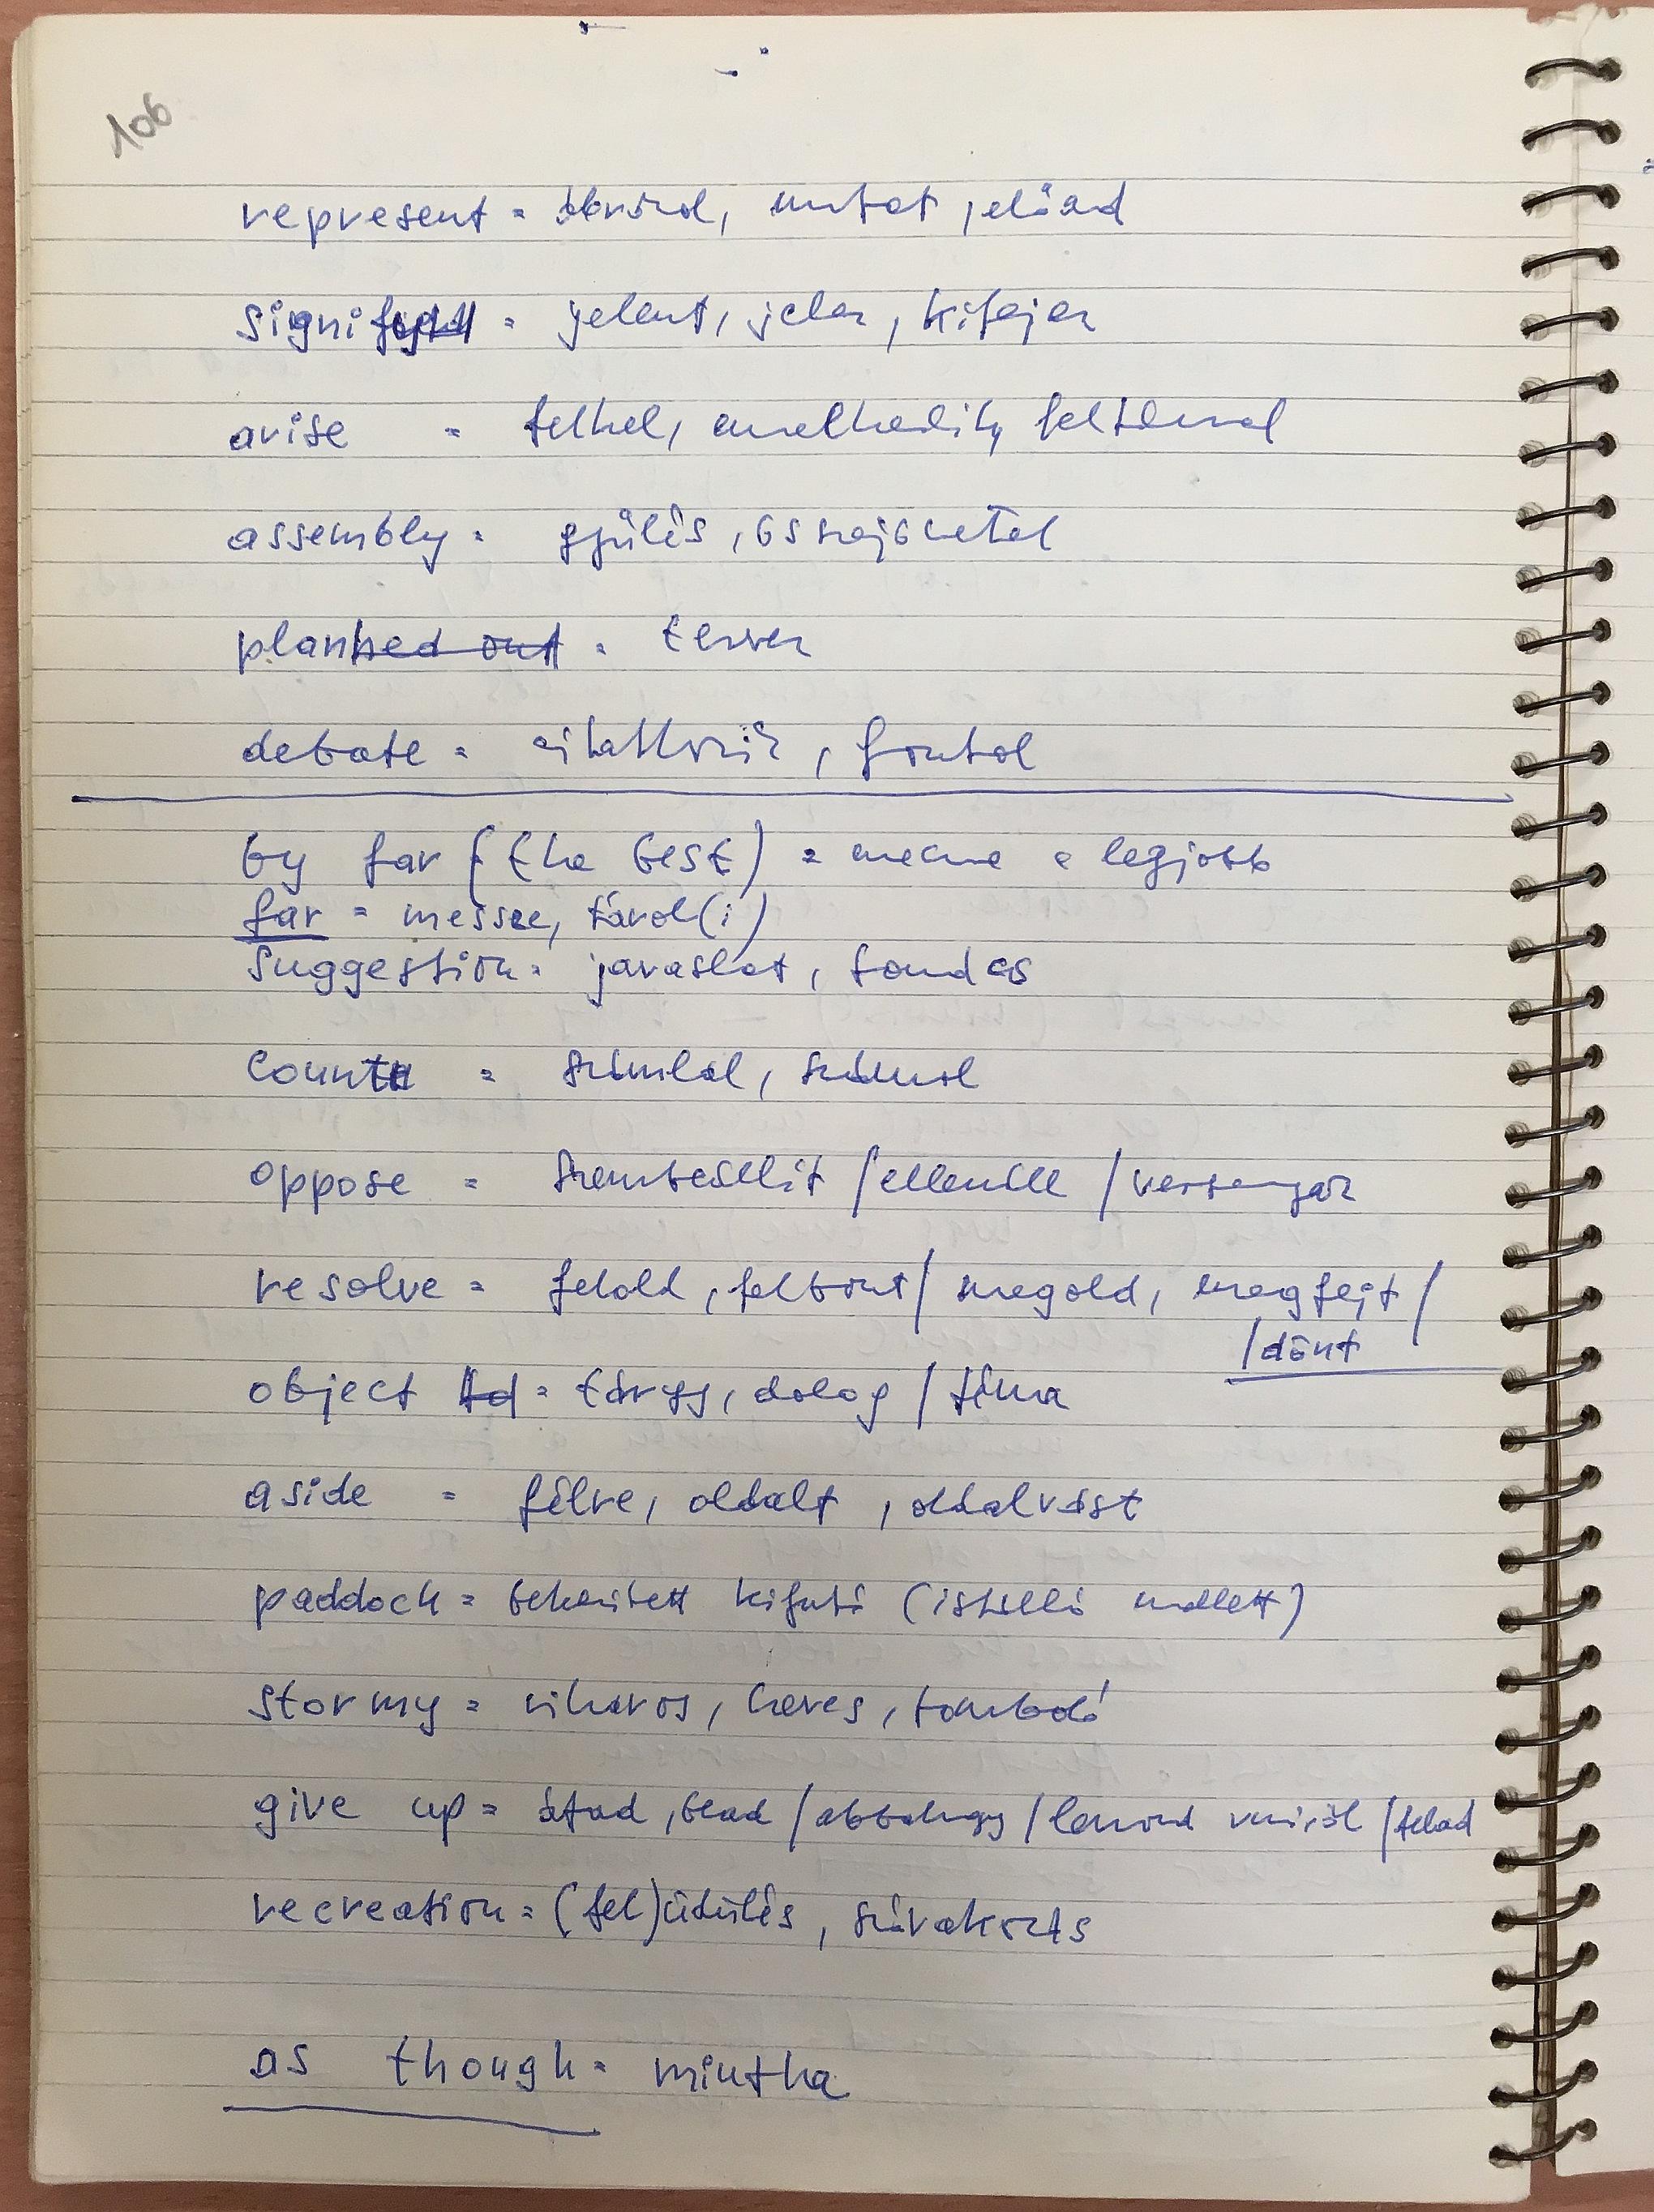 106
represent = ábrázol, mutat, előad
signify = jelent, jelez, kifejez
arise = felkel, emelkedik, feltámad
assembly = gyűlés, összejövetel
planned out = tervez
debate = vitatkozik, fontol
by far (the best) = messze a legjobb
far = messze, távol(i)
suggestion = javaslat,
count = számlál, számol
oppose = szembeállít / ellenáll / verseng
resolve = felold, felbont / megold, megfejt /
/dönt
object = tárgy, dolog / téma
aside = félre, oldalt, oldalvást
paddock = bekerített kifutó (istálló mellett)
stormy = viharos, heves, tomboló
give up = átad, bead / abbahagy / lemond vmiről / felad
recreation = (fel)üdülés, szórakozás
as though = mintha